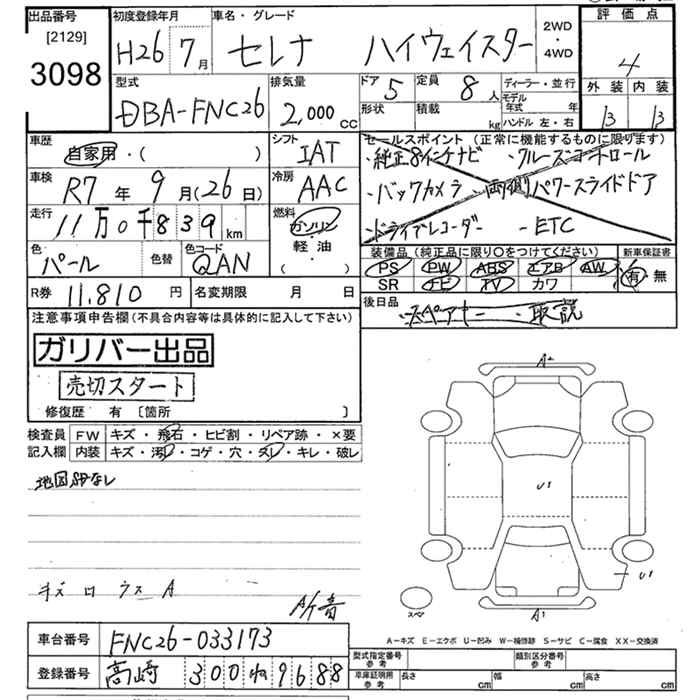 出品番号 初度登録年月 車名・グレード 2WD・4WD 評価点
[2129]
3098 H26 7月 セレナ ハイウェイスター 4
型式 排気量 ドア 5 定員 8人 ディーラー・並行 外装 内装
DBA-FNC26 2,000cc 形状 積載 kg モデル年式 年 ハンドル 左・右 B B
車歴 自家用・( ) シフト IAT セールスポイント (正常に機能するものに限ります)
・純正8インチナビ ・クルーズコントロール
車検 R7年9月(26日) 冷房 AAC ・バックカメラ ・両側パワースライドドア
走行 11万0千839km 燃料 ガソリン 軽油・( ) ・ドライブレコーダー -ETC
色 パール 色替 色コード QAN 装備品 (純正品に限り〇をつけてください) 新車保証書
PS PW ABS エアB AW 有・無
SR ナビ TV カワ
R券 11.810円 名変期限 月 日 後日品
・スペアキー ・取説
注意事項申告欄(不具合内容等は具体的に記入して下さい)
ガリバー出品
売切スタート
修復歴 有 〔箇所 〕
検査員 FW キズ・飛石・ヒビ割・リペア跡・×要
記入欄 内装 キズ・汚レ・コゲ・穴・スレ・キレ・破レ
A2
U1
U1
A1
スペア
キズ ロ ウス A
A-キズ E-エクボ U-凹み W-補修跡 S-サビ C-腐食 XX-交換済
車台番号 FNC26-033173
登録番号 高崎 300 ね 9688
型式指定番号 参考 類別区分番号 参考
車庫証明用 参考 長さ cm 幅 cm 高さ cm